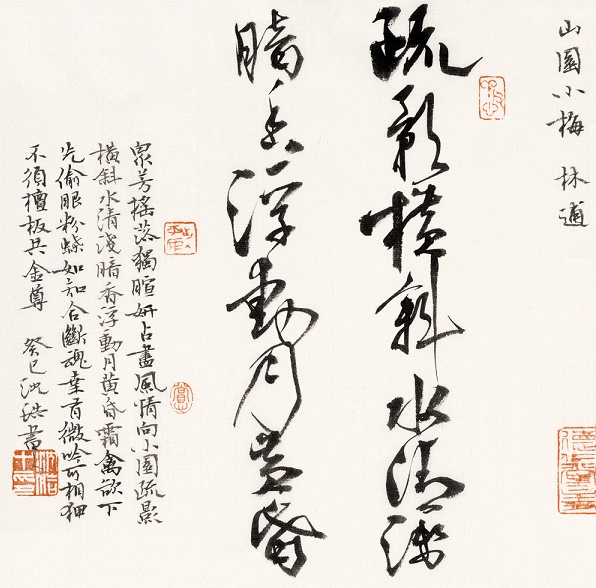 山園小梅 林逋
疏影橫斜水清淺
暗香浮動月黃昏
眾芳搖落獨暄妍占盡風情向小園疏影
橫斜水清淺暗香浮動月黃昏霜禽欲下
先偷眼粉蝶如知合斷魂幸有微吟可相狎
不須檀板共金尊 癸巳 沈 書